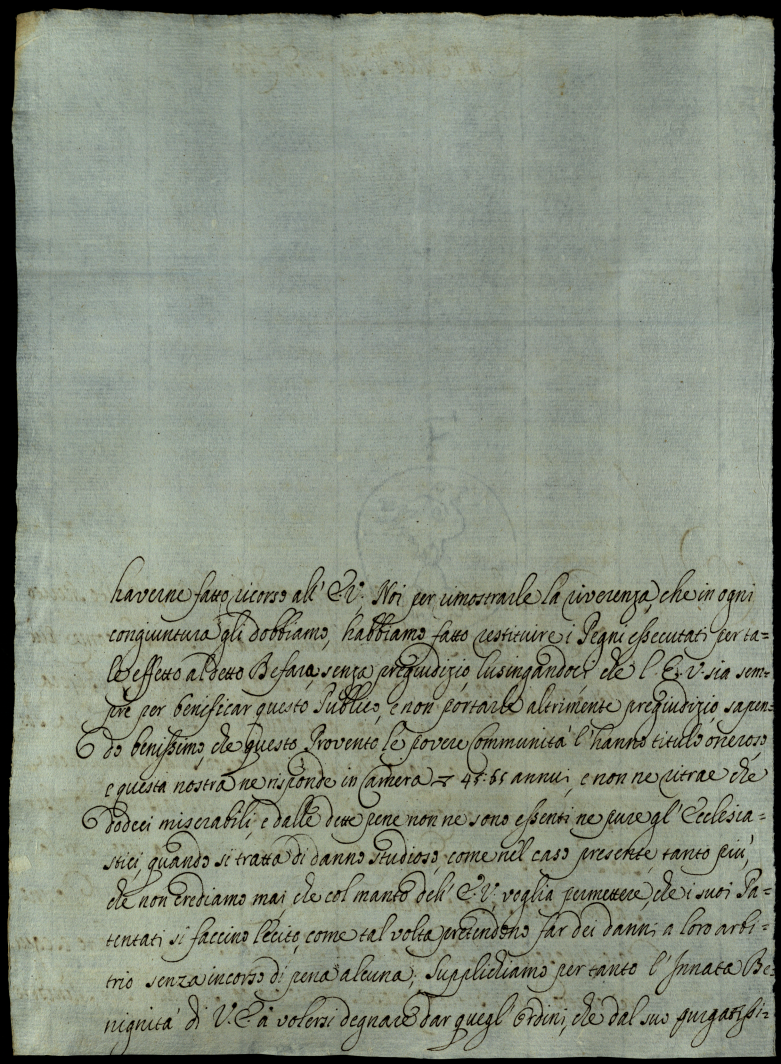 haverne fatto ricorso all' E.V. Noi per rimostrarle la riverenza, che in ogni
congiuntura gli dobbiamo, habbiamo fatto restituire i Pegni essecutati per ta=
le effetto al detto Befara, senza pregiudizio lusingandoci che l'E.V. sia sem=
pre per benificar questo Publico, e non portarle altrimente pregiudizio sapen=
do benissimo che questo Provento le povere Communità l'hanno titulo oneroso
e questa nostra ne risponde in Camera 45:65 annui, e non ne ritrae che
dodeci miserabili e dalle dette pene non ne sono essenti ne pure gl'Ecclesia=
stici, quando si tratta di danno studioso, come nel caso presente, tanto più,
che non crediamo mai, che col manto dell' E.V. voglia permettere, che i suoi Pa=
tentati si faccino lecito, come tal volta pretendono far dei danni a loro arbi=
trio senza incorso di pena alcuna; Supplichiamo per tanto l'Innata Be=
nignità di V.E. à volersi degnare dar quegl'Ordini, che dal suo purgatissi=